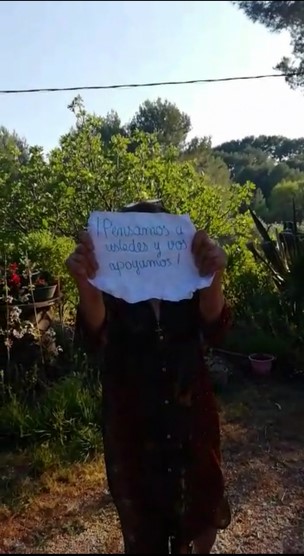 ¡Pensamos a
ustedes y vos
apoyamos!